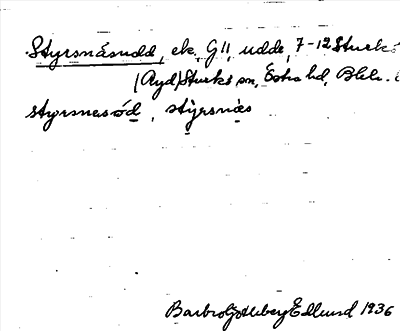 Styrsnäsudd, ek. G!!, udde, 7-12 Sturkö
(Ryd) Sturkö sn, Östra hd, Blek.
styrsnasód, stýrsnäs
Barbro Edlund 1936